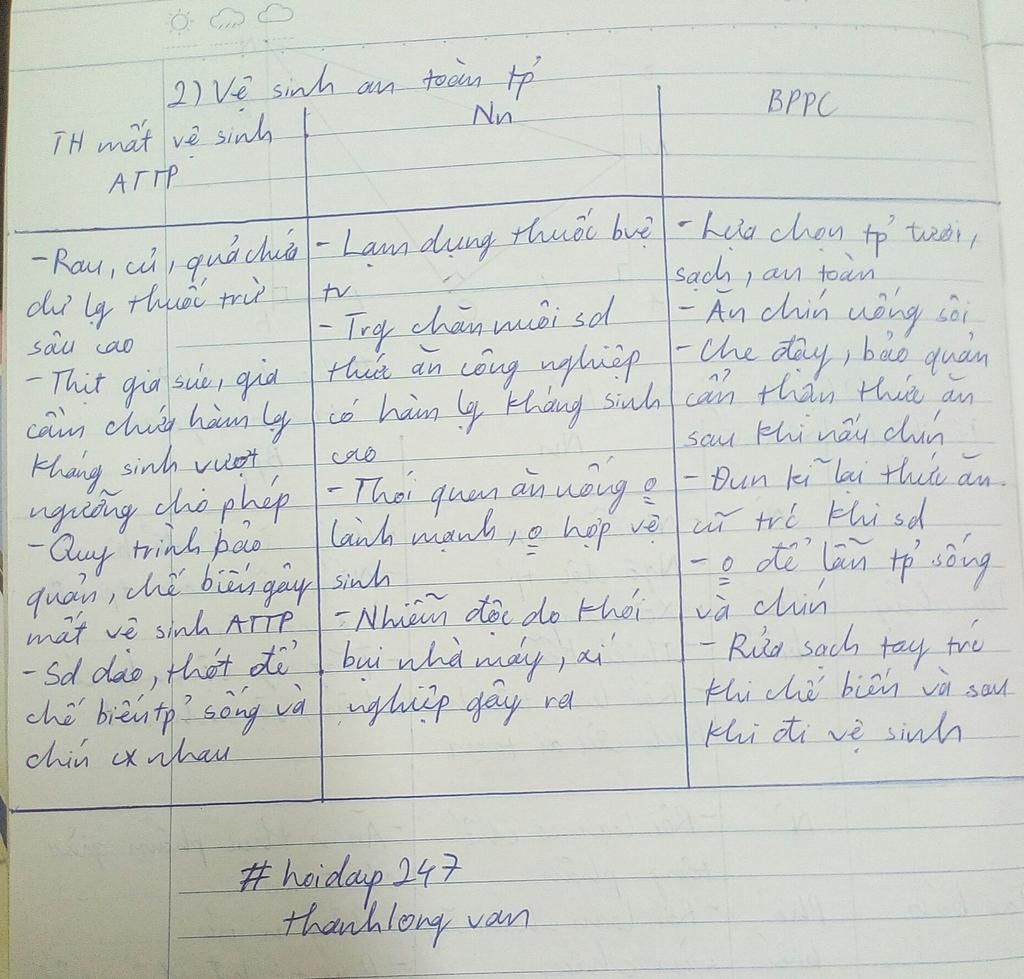 2) Vệ sinh an toàn tp̉
TH mất vệ sinh
ATTP
Nn
BPPC
- Rau, củ, quả chứa
dư lg thuốc trừ
sâu cao
- Thịt gia súc, gia
cầm chứa hàm lg
kháng sinh vượt
ngưỡng cho phép
- Quy trình bảo
quản, chế biến gây
mất vệ sinh ATTP
- Sd dao, thớt để
chế biến tp̉ sống và
chín cx nhau
- Lạm dụng thuốc bvệ
tv
- Trg chăn nuôi sd
thức ăn công nghiệp
có hàm lg kháng sinh
cao
- Thói quen ăn uống o
lành mạnh, o hợp vệ
sinh
- Nhiễm độc do khói
bụi nhà máy, xí
nghiệp gây ra
- Lựa chọn tp̉ tươi,
sạch, an toàn
- Ăn chín uống sôi
- Che đậy, bảo quản
cẩn thận thức ăn
sau khi nấu chín
- Đun kĩ lại thức ăn
cũ trc khi sd
- o để lẫn tp̉ sống
và chín
- Rửa sạch tay trc
khi chế biến và sau
khi đi vệ sinh
# hoidap247
thanhlong van